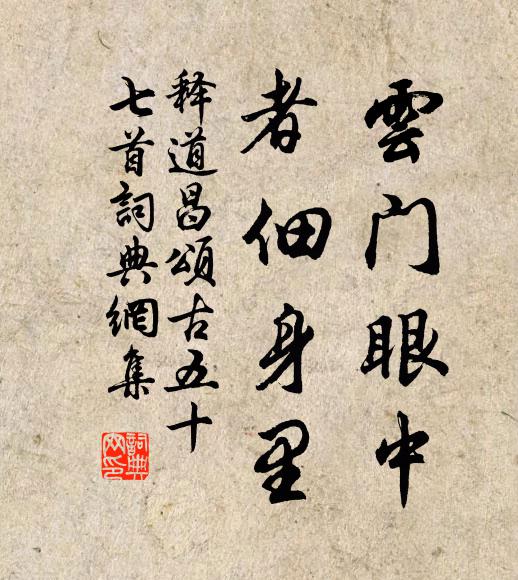 雲门眼中
者佃身里
释道昌頌古五十
七首詞典網集
詞典
网印